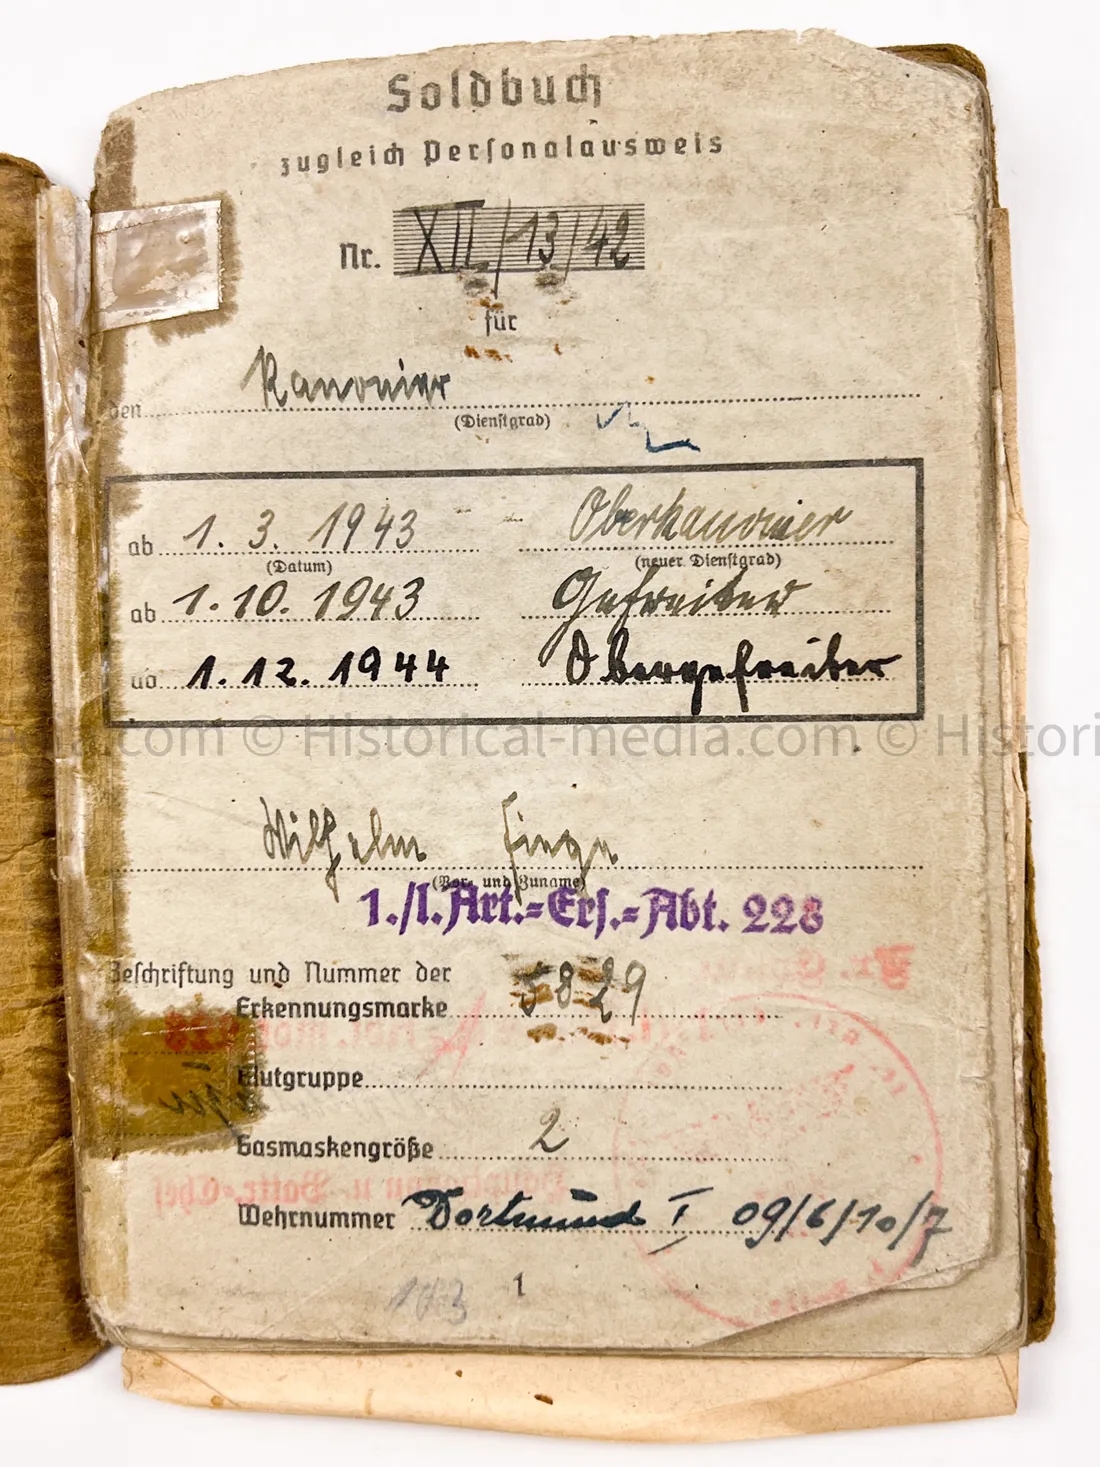 Soldbuch
zugleich Personalausweis
Nr. XII/13/42
für
den Kanonier
(Dienstgrad)
ab 1. 3. 1943 Oberkanonier
(Datum) (neuer Dienstgrad)
ab 1.10. 1943 Gefreiter
ab 1.12.1944 Obergefreiter
edia.com © Historical-media.com © Histori
Wilhelm
(Vor- und Zuname)
1./l.Art.=Ers.=Abt. 228
Beschriftung und Nummer der
Erkennungsmarke 5829
Blutgruppe
Gasmaskengröße 2
Wehrnummer Dortmund I 09/6/10/7
1